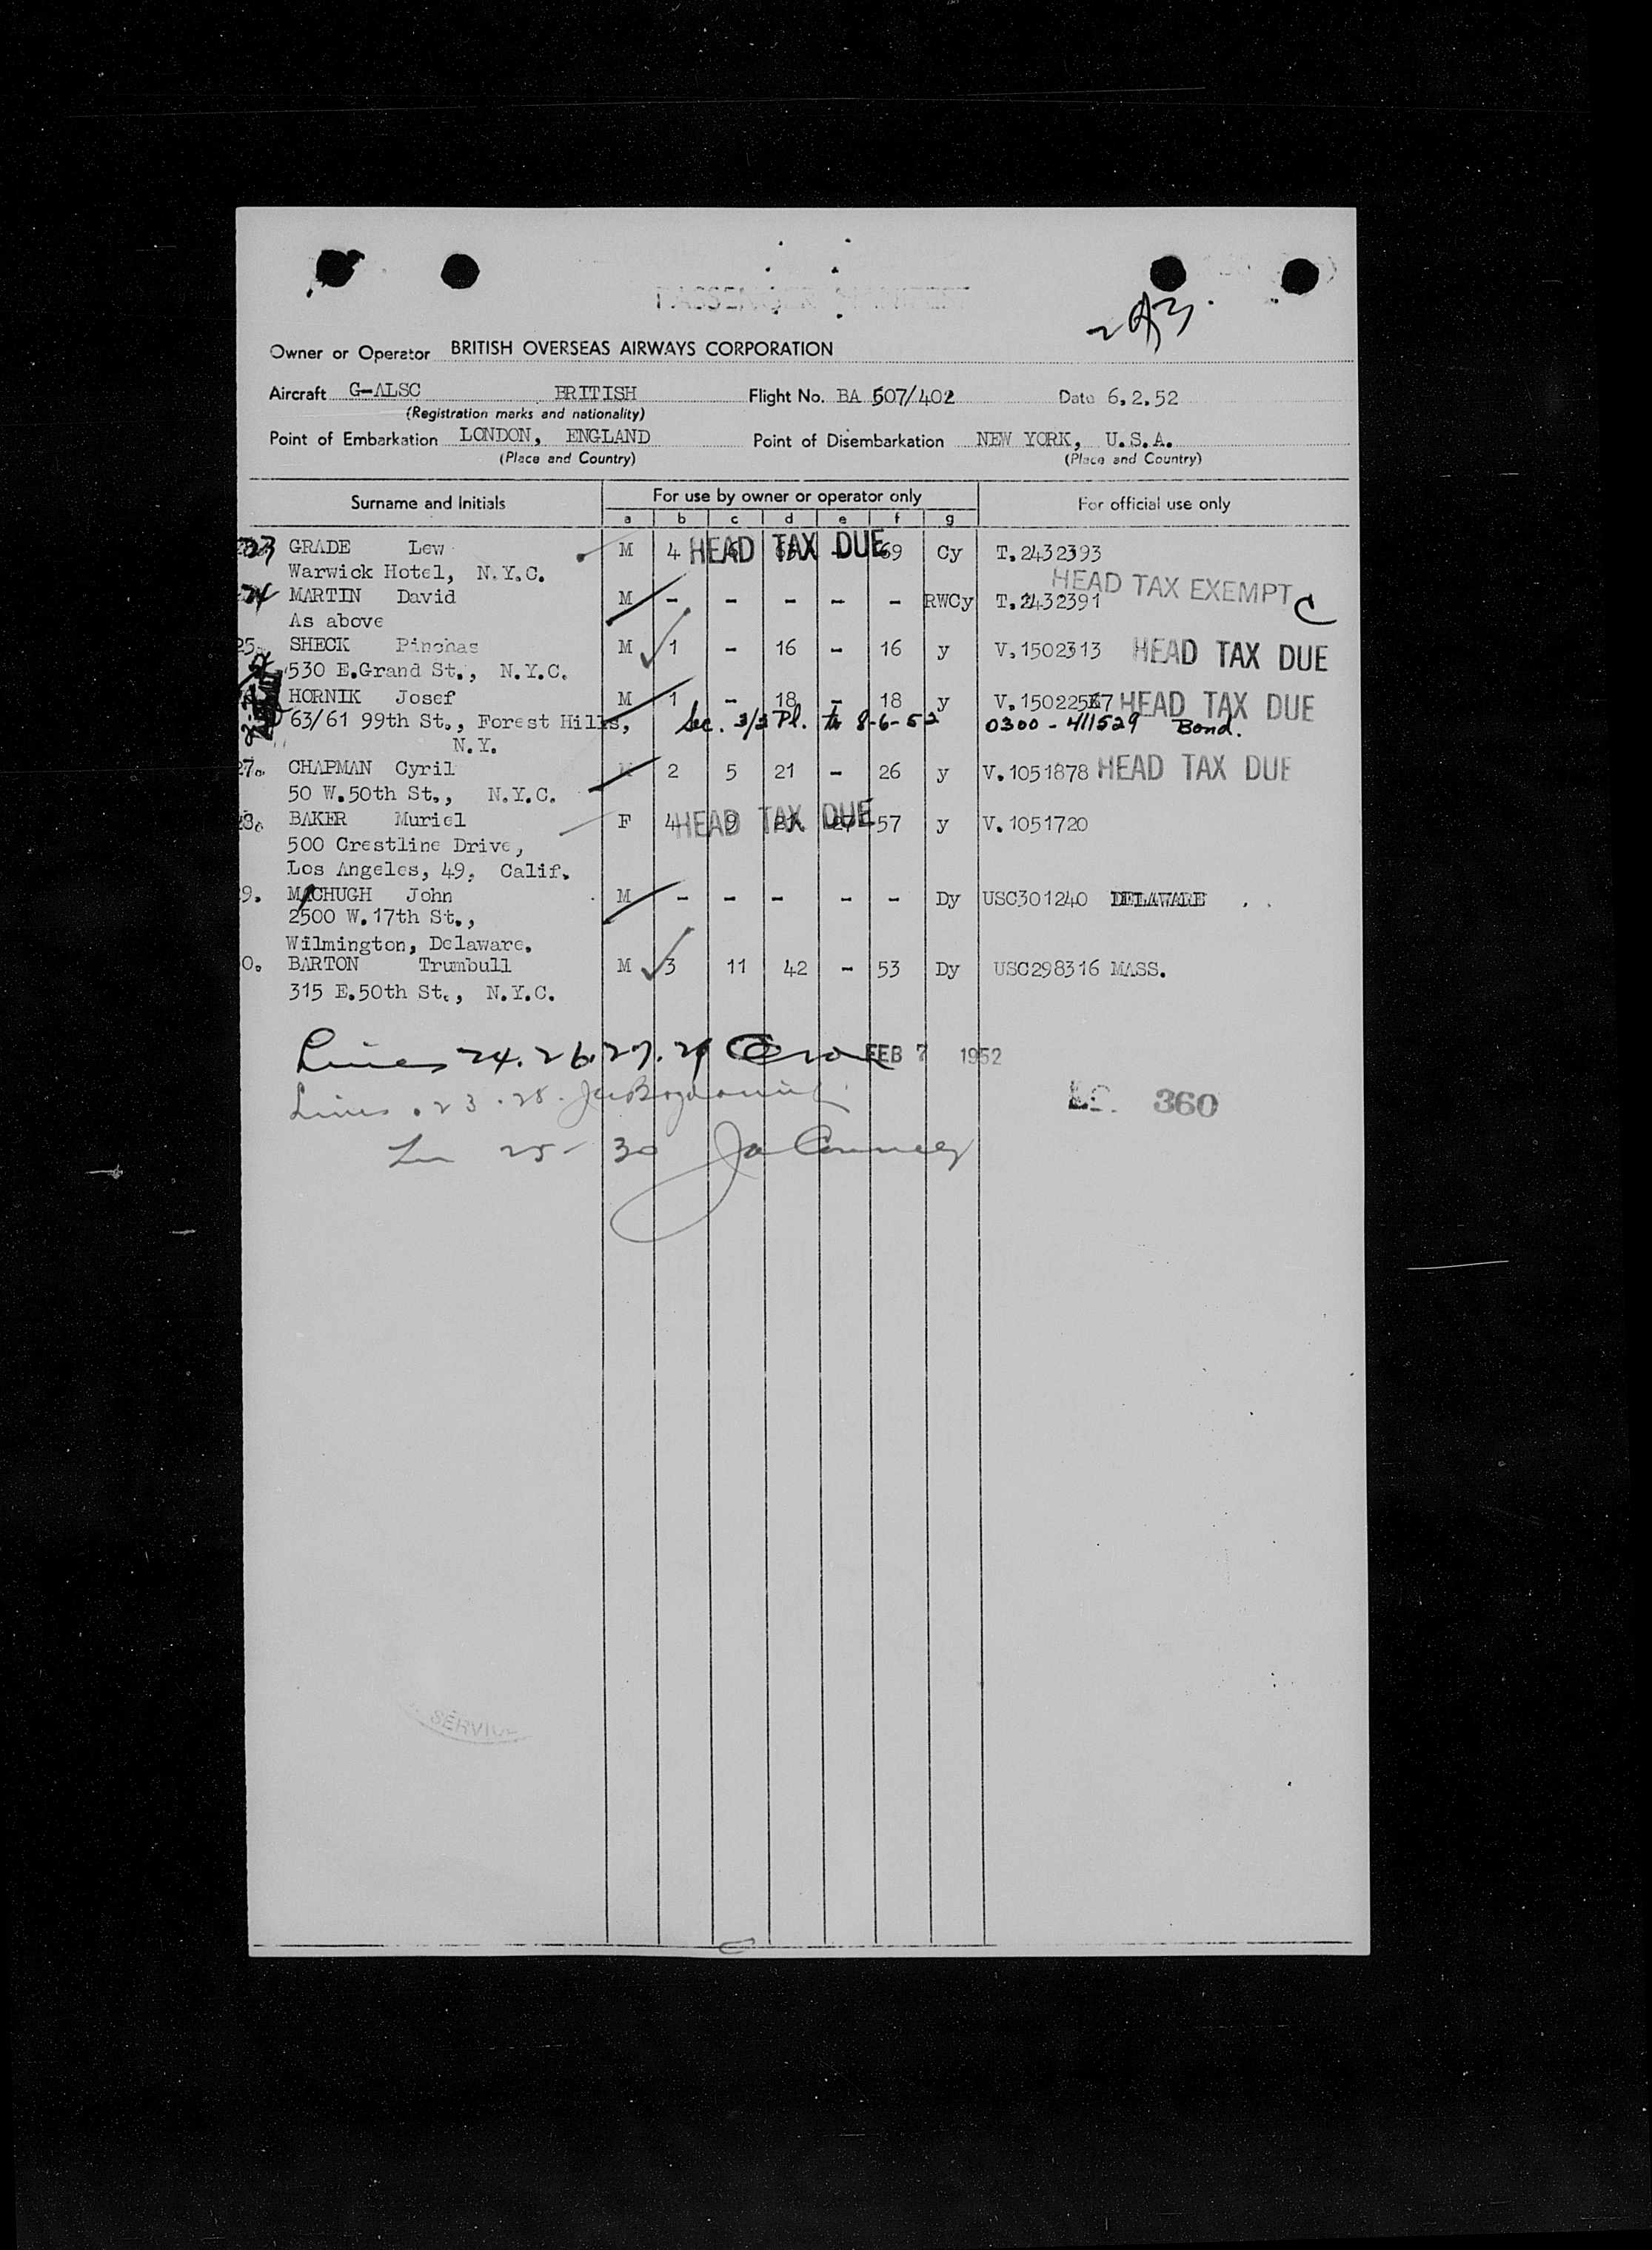 Owner or Operator BRITISH OVERSEAS AIRWAYS CORPORATION
Aircraft G-ALSC BRITISH Flight No. BA 507/402 Date 6.2.52
(Registration marks and nationality)
Point of Embarkation LONDON, ENGLAND Point of Disembarkation NEW YORK, U.S.A.
(Place and Country) (Place and Country)
Surname and Initials For use by owner or operator only For official use only
a b c d e f g
23 GRADE Lew M 4 HEAD TAX DUE 69 Cy T.2432393
Warwick Hotel, N.Y.C. HEAD TAX EXEMPT C
24 MARTIN David M - - - - - RWCy T.2432391
As above
25. SHECK Pinchas M 1 - 16 - 16 y V.1502313 HEAD TAX DUE
530 E.Grand St., N.Y.C.
HORNIK Josef M 1 - 18 - 18 y HEAD TAX DUE
63/61 99th St., Forest Hills, Sec. 3/3 Pl. to 8-6-52 0300-411529 Bond.
N.Y.
27. CHAPMAN Cyril M 2 5 21 - 26 y V.1051878 HEAD TAX DUE
50 W.50th St., N.Y.C.
28. BAKER Muriel F 4 HEAD TAX DUE 57 y V.1051720
500 Crestline Drive,
Los Angeles, 49, Calif.
9. MACHUGH John M - - - - - Dy USC301240 DELAWARE
2500 W.17th St.,
Wilmington, Delaware.
0. BARTON Trumbull M 3 11 42 - 53 Dy USC298316 MASS.
315 E.50th St., N.Y.C.
Lines 24.26.27.29 FEB 7 1952
Lines 23.28.
360
25-30
SERVICE